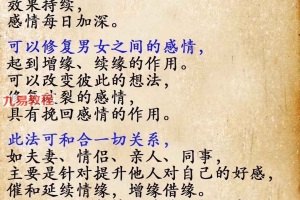 效果持续，
感情每日加深。
可以修复男女之间的感情，
起到增缘、续缘的作用。
可以改变彼此的想法，
修复破裂的感情，
九易教程
具有挽回感情的作用。
此法可和合一切关系，
如夫妻、情侣、亲人、同事，
主要是针对提升他人对自己的好感，
催和延续情缘，增缘借缘。